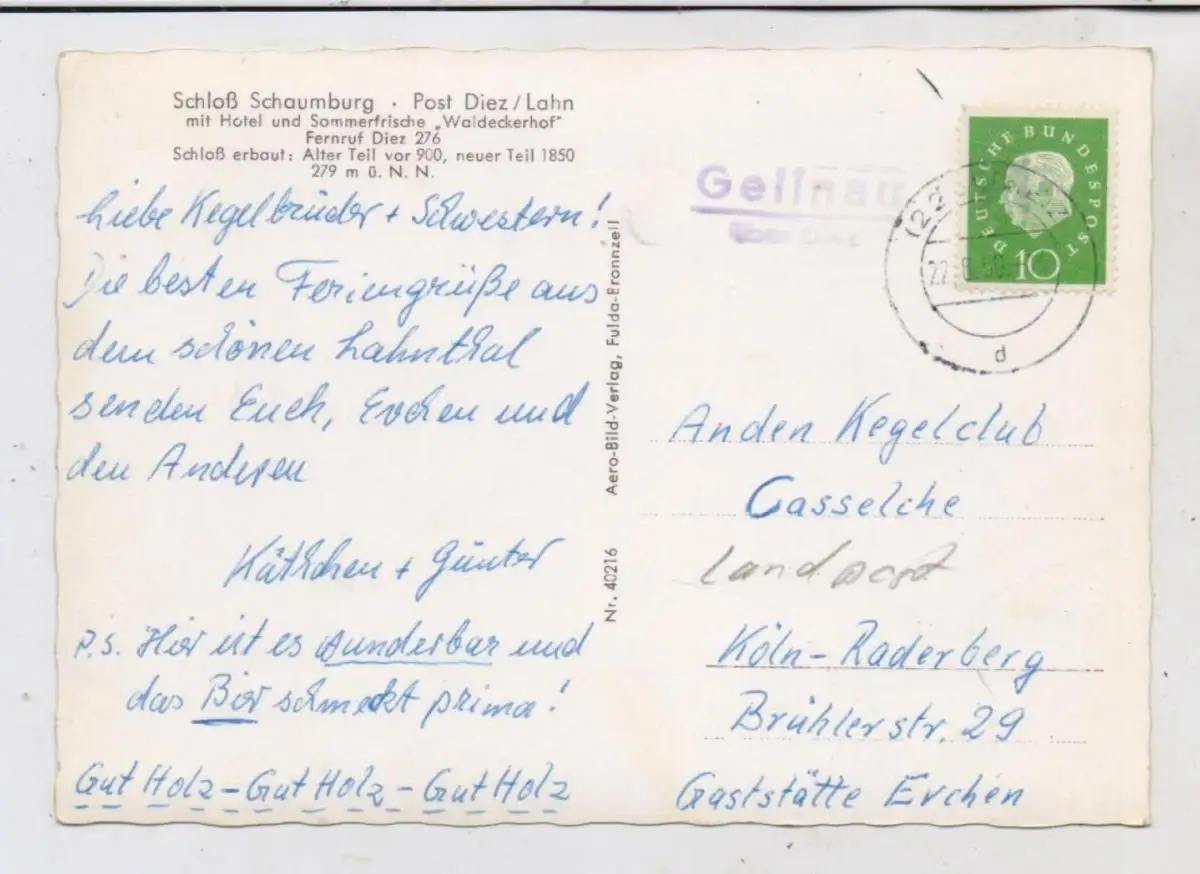 Schloß Schaumburg · Post Diez/Lahn
mit Hotel und Sommerfrische „Waldeckerhof"
Fernruf Diez 276
Schloß erbaut: Alter Teil vor 900, neuer Teil 1850
279 m ü. N. N.
Liebe Kegelbrüder + Schwestern!
Die besten Feriengrüße aus
dem schönen Lahnthal
senden Euch, Evchen und
den Anderen
Käthchen + Günter
P.S. Hier ist es wunderbar und
das Bier schmeckt prima!
Gut Holz – Gut Holz – Gut Holz
Nr. 40216 Aero-Bild-Verlag, Fulda-Bronnzell
Gellnau
über Diez
DEUTSCHE BUNDESPOST
10
d
An den Kegelclub
Casselche
Landpost
Köln-Raderberg
Brühlerstr. 29
Gaststätte Evchen